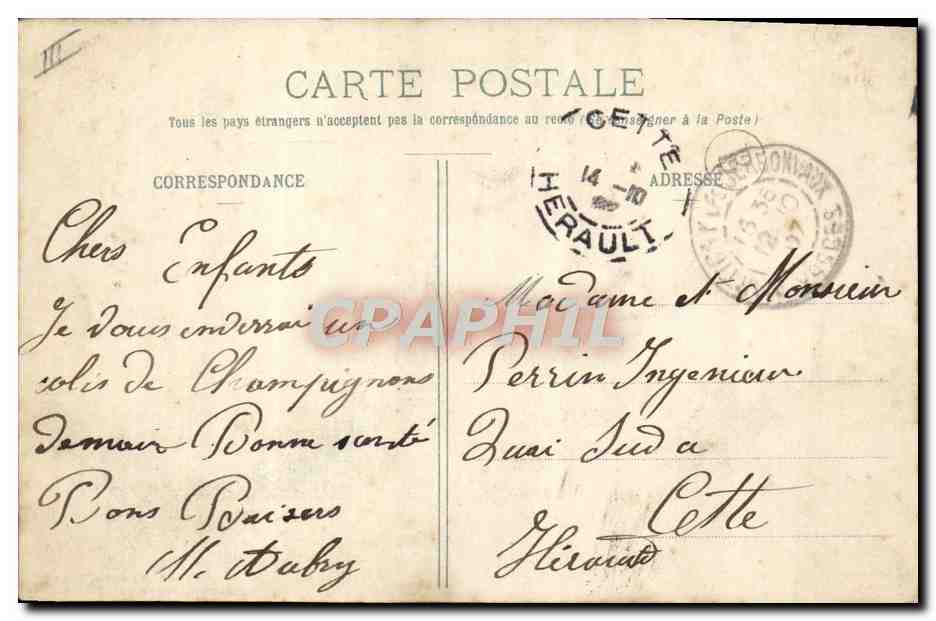 CARTE POSTALE
Tous les pays étrangers n'acceptent pas la correspondance au recto (Se renseigner à la Poste)
CORRESPONDANCE
ADRESSE
CETTE
14 -10
HERAULT
Chers Enfants
Je vous enverrai un
colis de Champignons
demain Bonne santé
Bons Baisers
M. Aubry
Madame et Monsieur
Perrin Ingenieur
Quai Sud a
Cette
Hérault
CPAPHIL